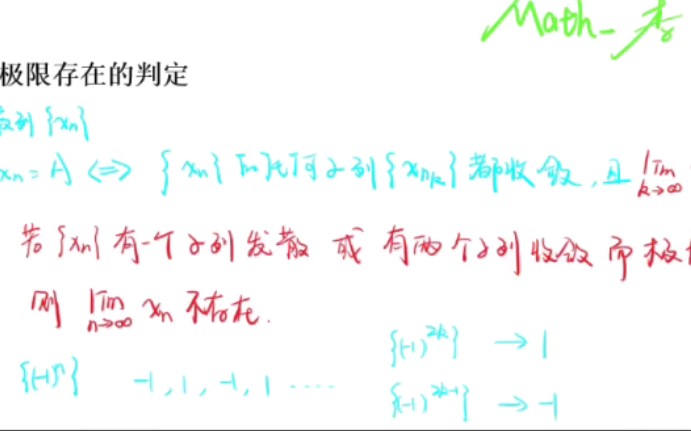 Math_李
极限存在的判定
数列{xₙ}
xₙ = A ⟺ {xₙ} 的任何子列{xₙₖ}都收敛,且 lim k→∞
若{xₙ}有一个子列发散 或 有两个子列收敛而极
则 lim n→∞ xₙ 不存在.
{(-1)^{2k}} → 1
{(-1)ⁿ} -1, 1, -1, 1 ····
{(-1)^{2k-1}} → -1